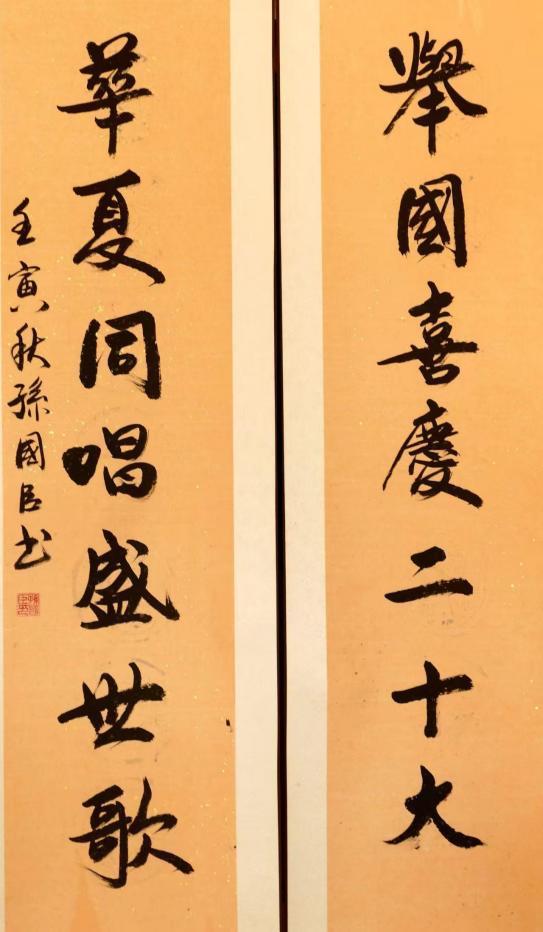 舉國喜慶二十大
華夏同唱盛世歌
壬寅秋孫國臣书